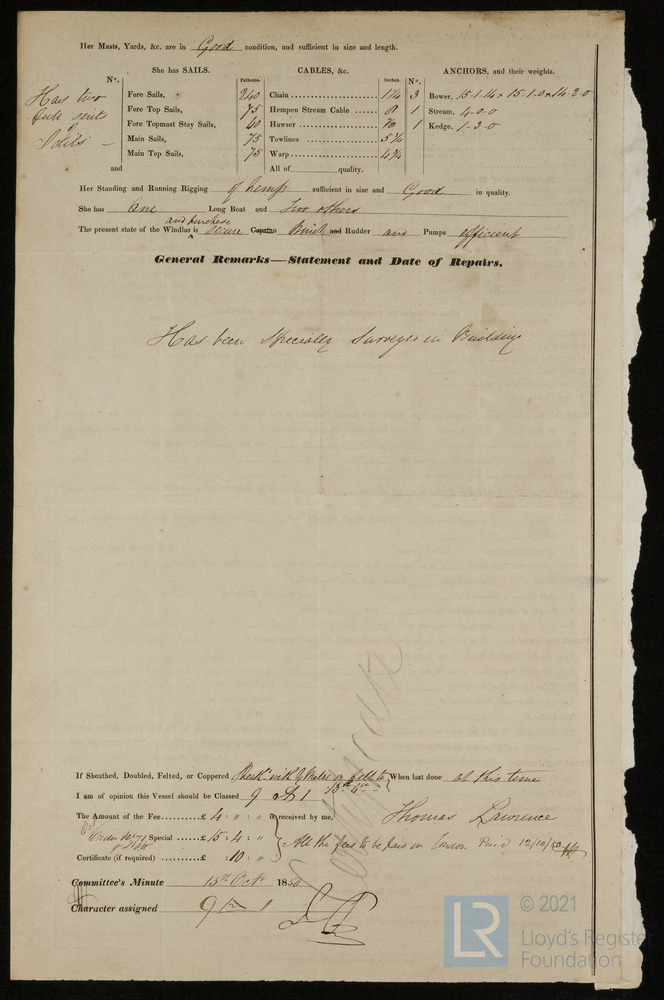 Her Masts, Yards, &c. are in Good condition, and sufficient in size and length.
She has SAILS. CABLES, &c. ANCHORS, and their weights.
N°. Fathoms. Inches. N°.
Has two Fore Sails, 240 Chain 1¼ 3 Bower, 15-1-14 × 15-1-0 × 14-2-0
full suits Fore Top Sails, 75 Hempen Stream Cable 8 1 Stream, 4-0-0
of Fore Topmast Stay Sails, 60 Hawser 1 Kedge, 1-3-0
Main Sails, 75 Towlines
Main Top Sails, 75 Warp
and All of quality.
Her Standing and Running Rigging of hemp sufficient in size and Good in quality.
She has One Long Boat and Two others
and purchase
The present state of the Windlas is Secure Capstan Winch and Rudder and Pumps efficient
General Remarks—Statement and Date of Repairs.
Has been Specially Surveyed in Building
If Sheathed, Doubled, Felted, or Coppered with Y Metal on felt to When last done at this time
I am of opinion this Vessel should be Classed 9 A 1
The Amount of the Fee £ 4 : " : " is received by me, Thomas Lawrence
Special £ 15 : 4 : " All the fees to be paid in London Paid 12/10/50
Certificate (if required) £ : 10 : "
Committee's Minute 15th Oct 1850
Character assigned 9 A 1
LR
© 2021
Lloyd's Register
Foundation